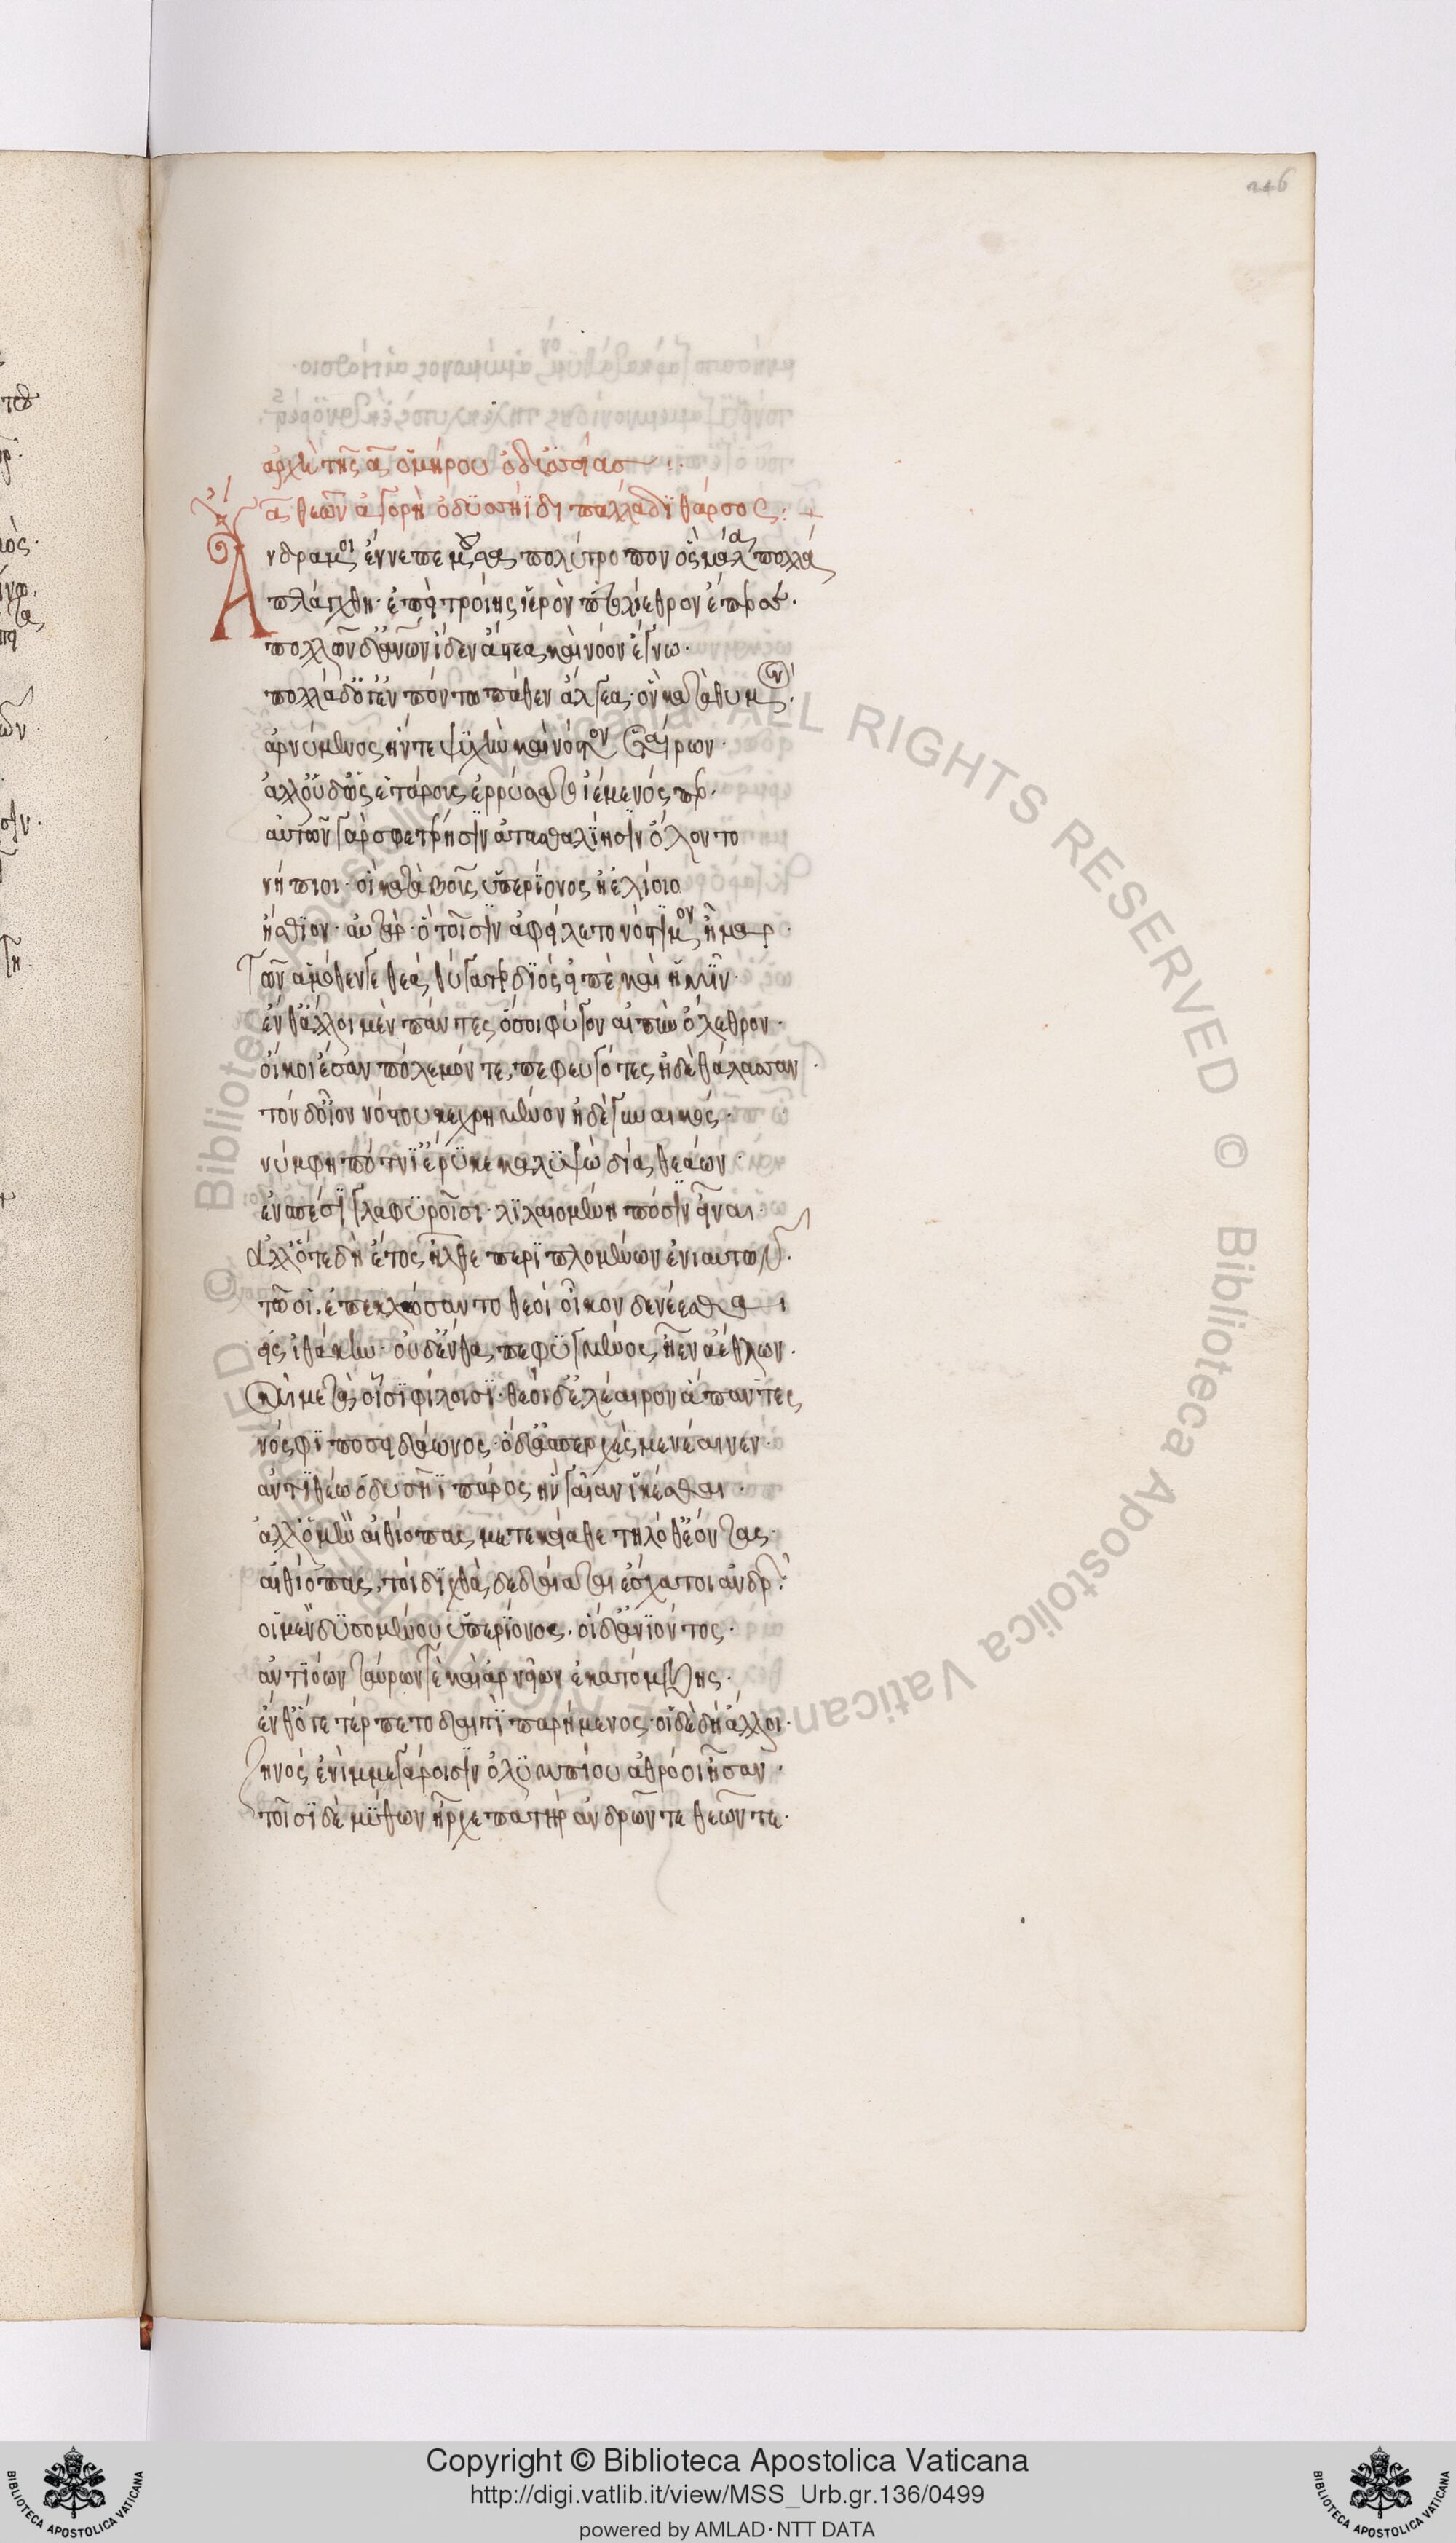 246
ἀρχὴ τῆς α ὁμήρου ὀδυσσείας
α θεῶν ἀγορὴ ὀδυσσηΐδι παλλάδι θάρσος:
Ανδρα μοι ἔννεπε μοῦσα πολύτροπον ὃς μάλα πολλά
πλάγχθη· ἐπεὶ τροίης ἱερὸν πτολίεθρον ἔπερσε·
πολλῶν δ' ἀνθρώπων ἴδεν ἄστεα καὶ νόον ἔγνω·
πολλὰ δ' ὅγ' ἐν πόντω πάθεν ἄλγεα ὃν κατὰ θυμόν·
ἀρνύμενος ἥν τε ψυχὴν καὶ νόστον ἑταίρων·
ἀλλ' οὐδ' ὣς ἑτάρους ἐρρύσατο ἱέμενός περ·
αὐτῶν γὰρ σφετέρησιν ἀτασθαλίησιν ὄλοντο
νήπιοι· οἳ κατὰ βοῦς ὑπερίονος ἠελίοιο
ἤσθιον· αὐτὰρ ὁ τοῖσιν ἀφείλετο νόστιμον ἦμαρ·
τῶν ἁμόθεν γε θεὰ θύγατερ διὸς εἰπὲ καὶ ἡμῖν·
ἔνθ' ἄλλοι μὲν πάντες ὅσοι φύγον αἰπὺν ὄλεθρον·
οἴκοι ἔσαν πόλεμόν τε πεφευγότες ἠδὲ θάλασσαν
τὸν δ' οἶον νόστου κεχρημένον ἠδὲ γυναικός·
νύμφη πότνι' ἔρυκε καλυψὼ δῖα θεάων·
ἐν σπέσι γλαφυροῖσι· λιλαιομένη πόσιν εἶναι·
ἀλλ' ὅτε δὴ ἔτος ἦλθε περιπλομένων ἐνιαυτῶν·
τῶ οἱ ἐπεκλώσαντο θεοὶ οἶκον δε νέεσθαι
εἰς ἰθάκην· οὐδ' ἔνθα πεφυγμένος ἦεν ἀέθλων·
καὶ μετὰ οἷσι φίλοισι· θεοὶ δ' ἐλέαιρον ἅπαντες
νόσφι ποσειδάωνος· ὁ δ' ἀσπερχὲς μενέαινεν·
ἀντιθέω ὀδυσῆϊ πάρος ἣν γαῖαν ἱκέσθαι·
ἀλλ' ὁ μὲν αἰθίοπας μετεκίαθε τηλόθ' ἐόντας·
αἰθίοπας, τοὶ διχθὰ δεδαίαται ἔσχατοι ἀνδρῶν·
οἱ μὲν δυσομένου ὑπερίονος· οἱ δ' ἀνιόντος·
ἀντιόων ταύρων τε καὶ ἀρνειῶν ἑκατόμβης·
ἔνθ' ὅγε τέρπετο δαιτὶ παρήμενος· οἱ δὲ δὴ ἄλλοι·
ζηνὸς ἐνὶ μμεγάροισιν ὀλυμπίου ἀθρόοι ἦσαν·
τοῖσι δὲ μύθων ἦρχε πατὴρ ἀνδρῶν τε θεῶν τε·
Copyright © Biblioteca Apostolica Vaticana
http://digi.vatlib.it/view/MSS_Urb.gr.136/0499
powered by AMLAD·NTT DATA
BIBLIOTECA APOSTOLICA VATICANA
BIBLIOTECA APOSTOLICA VATICANA